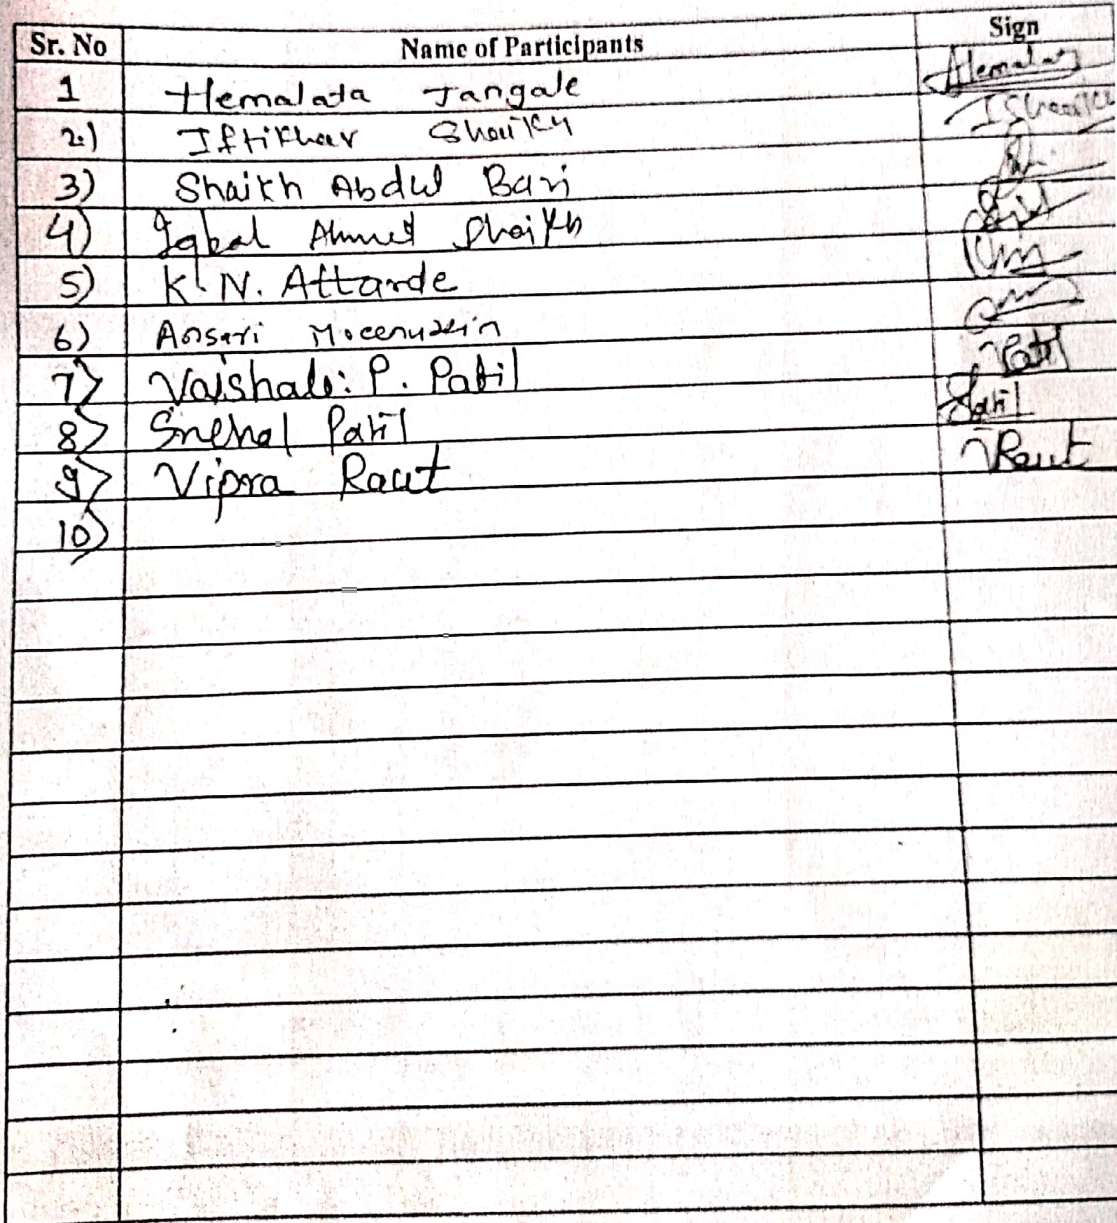 Sr. No Name of Participants Sign
1 Hemalata Jangale Hemalata
2.) Iftikhar Shaikh IShaikh
3) Shaikh Abdul Bari
4) Iqbal Ahmed Shaikh
5) K. N. Attarde
6) Ansari Moeenuddin
7) Vaishali P. Patil Patil
8) Snehal Patil Patil
9) Vipra Raut VRaut
10)